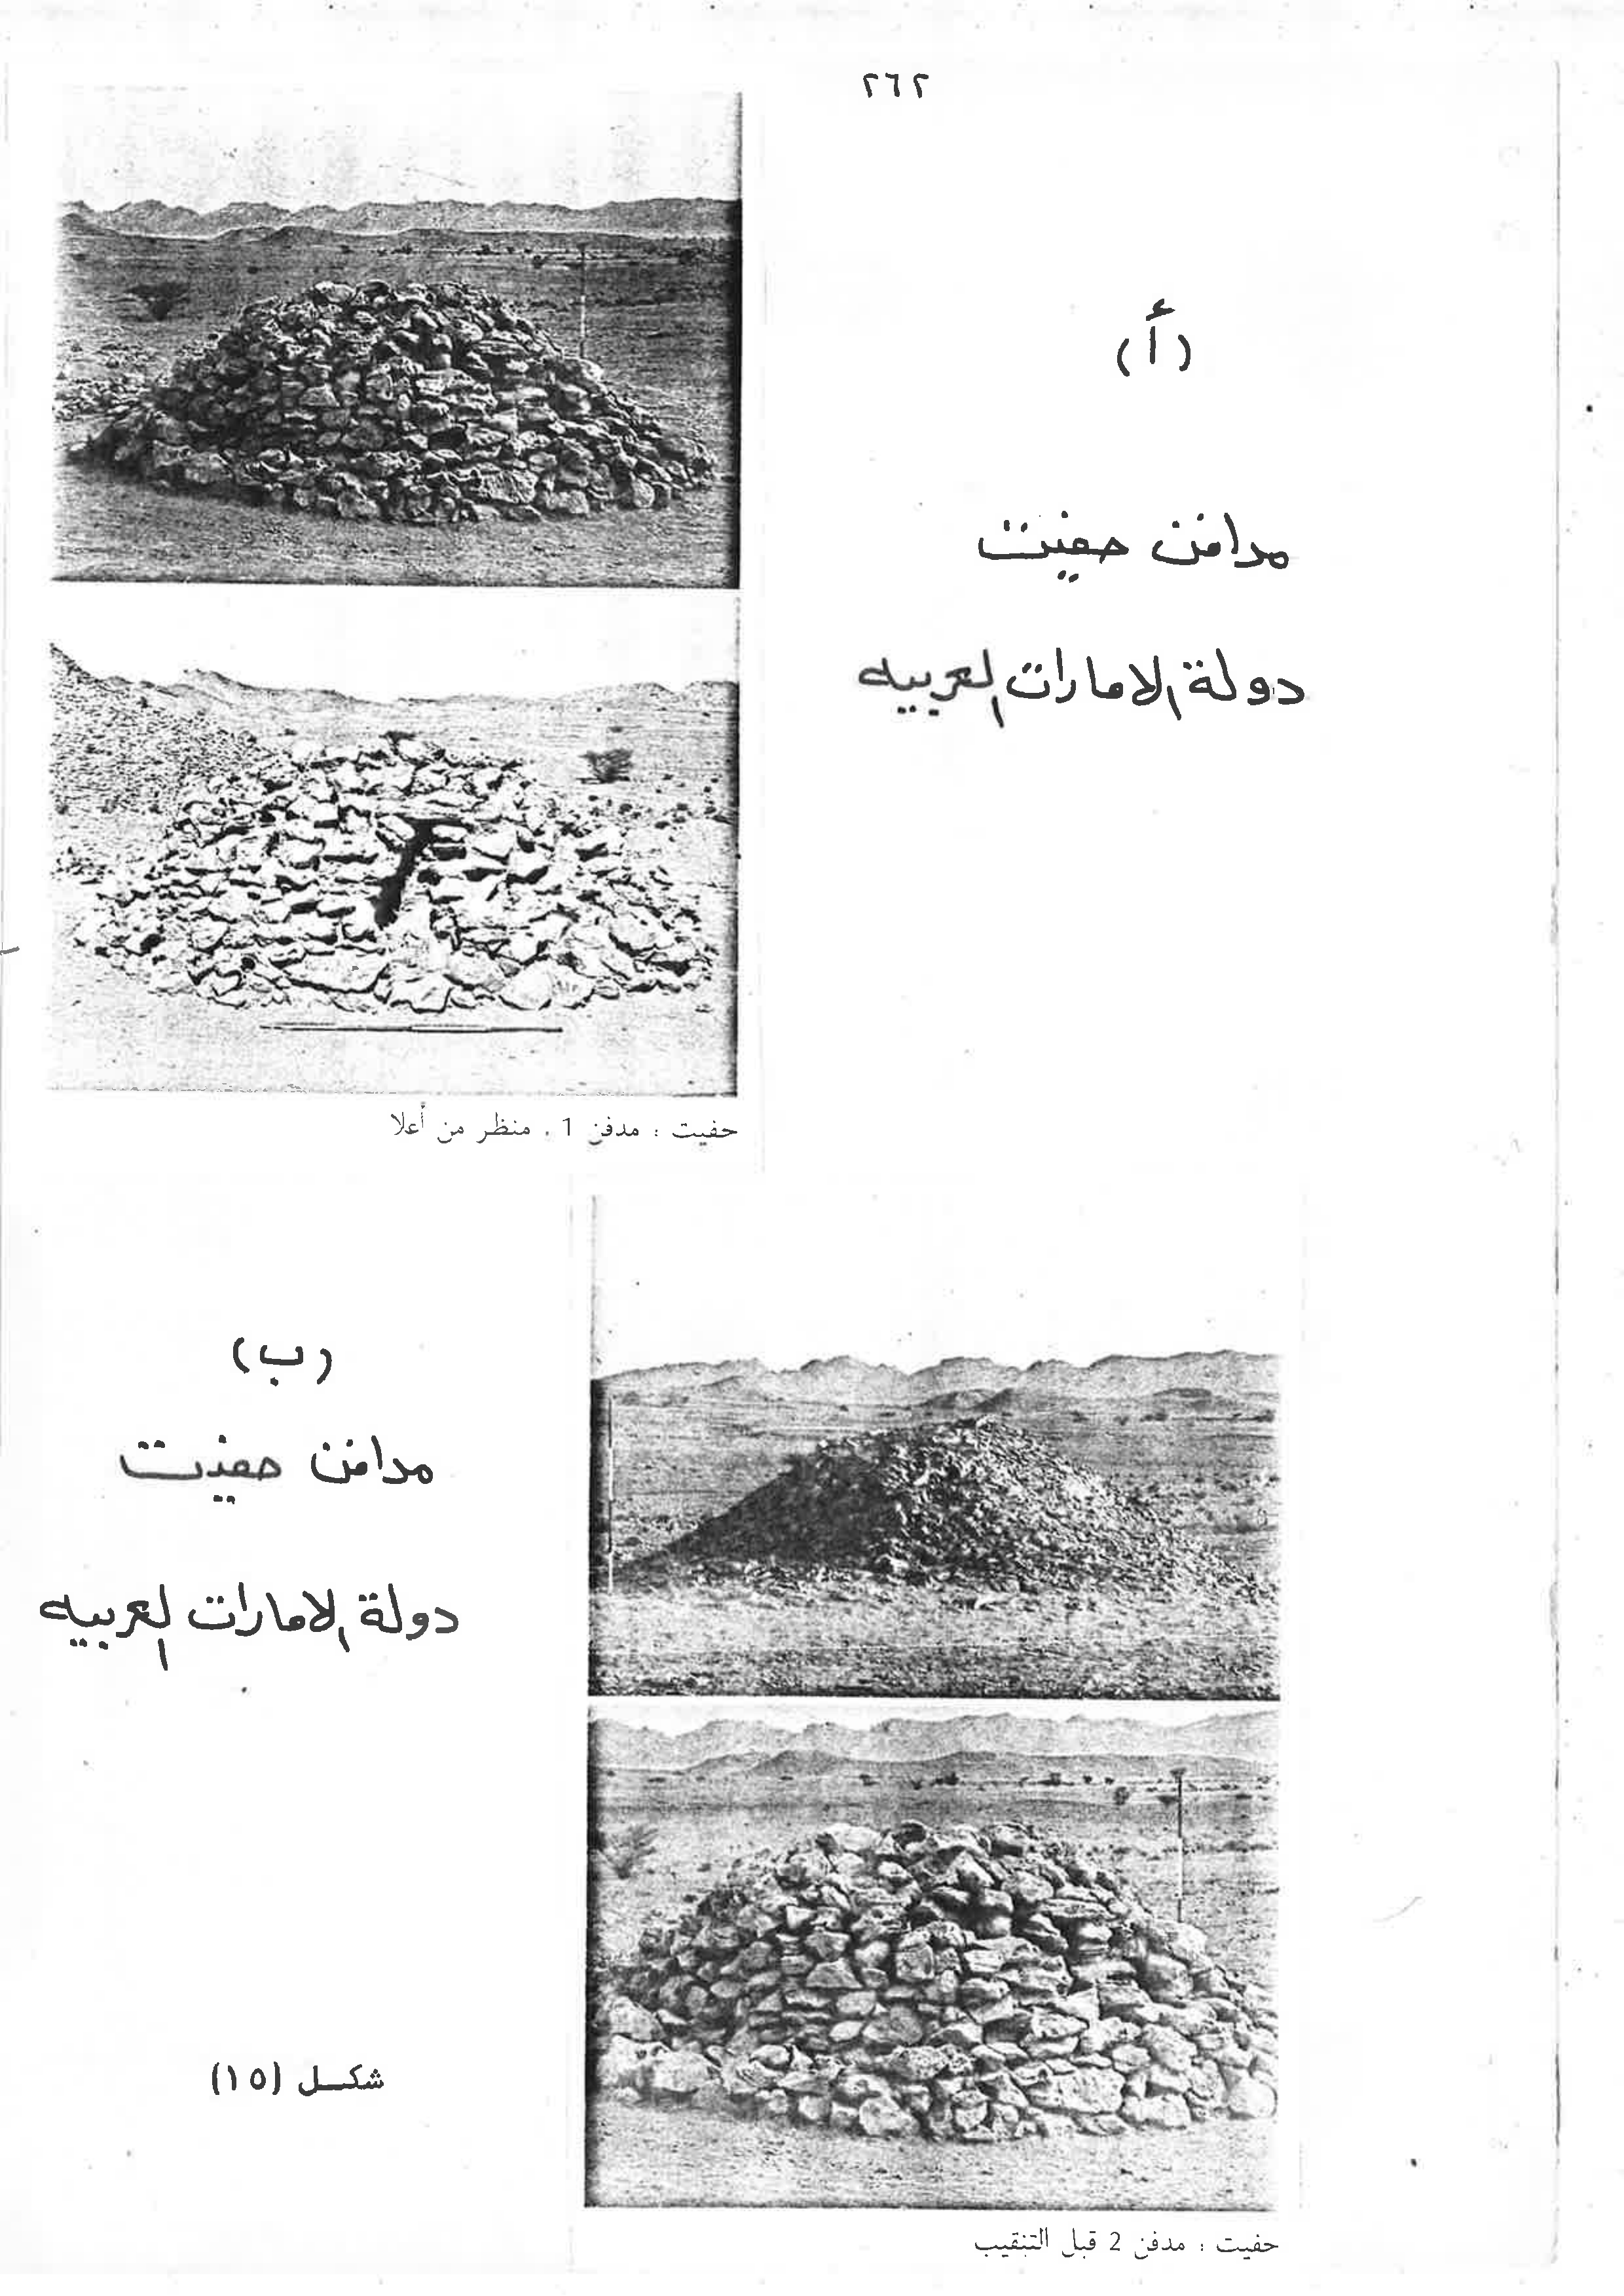 ٢٦٢
(أ)
مدافن حفيت
دولة الامارات العربيه
حفيت : مدفن 1 . منظر من أعلا
(ب)
مدافن حفيت
دولة الامارات العربيه
شكل (١٥)
حفيت : مدفن 2 قبل التنقيب